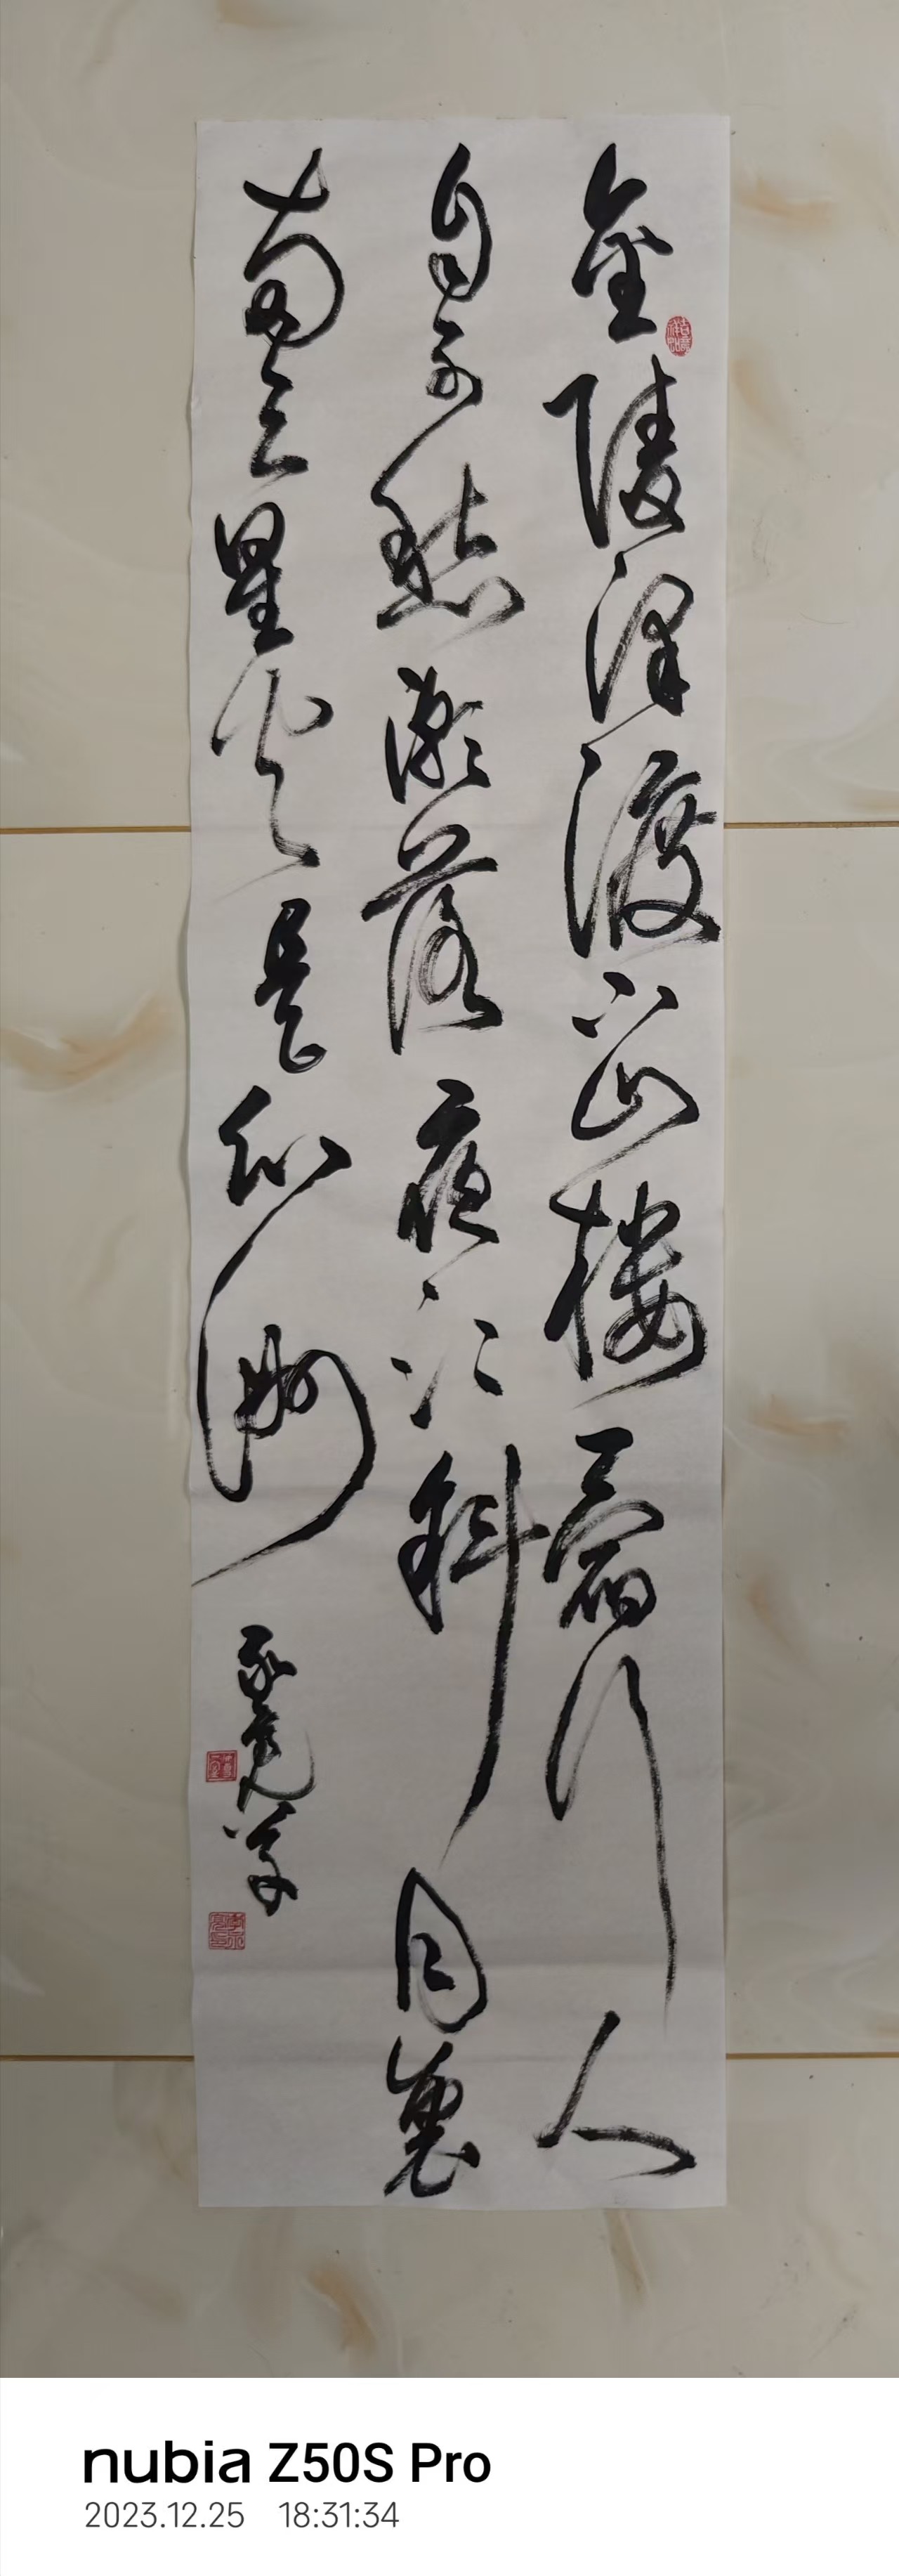 金陵津渡小山楼一宿行人
自可愁潮落夜江斜月里
两三星火是瓜洲
nubia Z50S Pro
2023.12.25 18:31:34